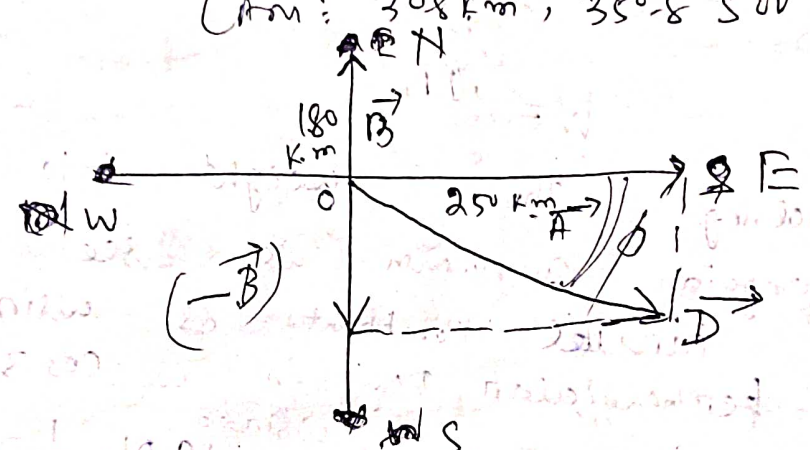 (Ans: 308 km, 35.8° 
N
180
K.m
B
E
O
250 K.m
A
φ
W
(-B)
D
S